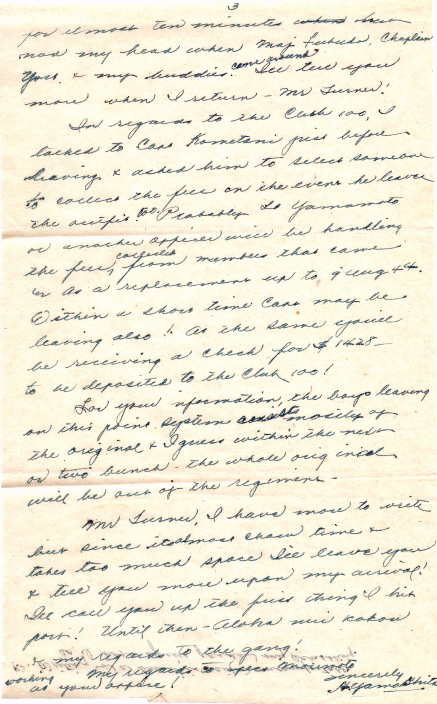 3
for almost ten minutes but
nod my head when Maj Fukuda, Chaplin
Yost & my buddies came around. I'll tell you
more when I return - Mr Turner!
In regards to the Club 100, I
talked to Capt Kometani just before
leaving & asked him to select someone
to collect the fee in the event he leaves
the outfit too. Probably Lt Yamamoto
or another officer will be handling
the fees collected from members that came
in as a replacement up to 9 Aug 44.
Within a short time Capt may be
leaving also! At the same you'll
be receiving a check for $1428-
to be deposited to the Club 100!
For your information, the boys leaving
on this point system consists mostly of
the original & I guess within the next
or two bunch - the whole original
will be out of the regiment -
Mr Turner, I have more to write
but since its almost chow time &
takes too much space I'll leave you
& tell you more upon my arrival!
I'll call you up the first thing I hit
port! Until then - Aloha nui kakou
my regards to the gang!
My regards to
working at your office!
Sincerely
H Yamashita